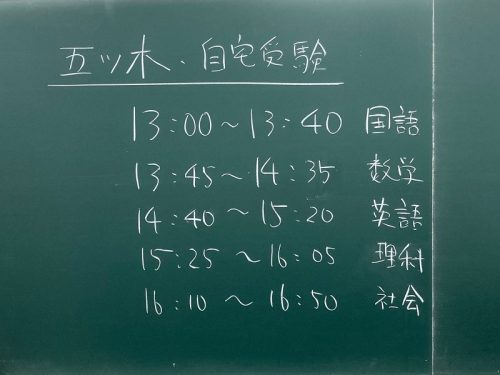 五ツ木・自宅受験
13:00～13:40 国語
13:45～14:35 数学
14:40～15:20 英語
15:25～16:05 理科
16:10～16:50 社会